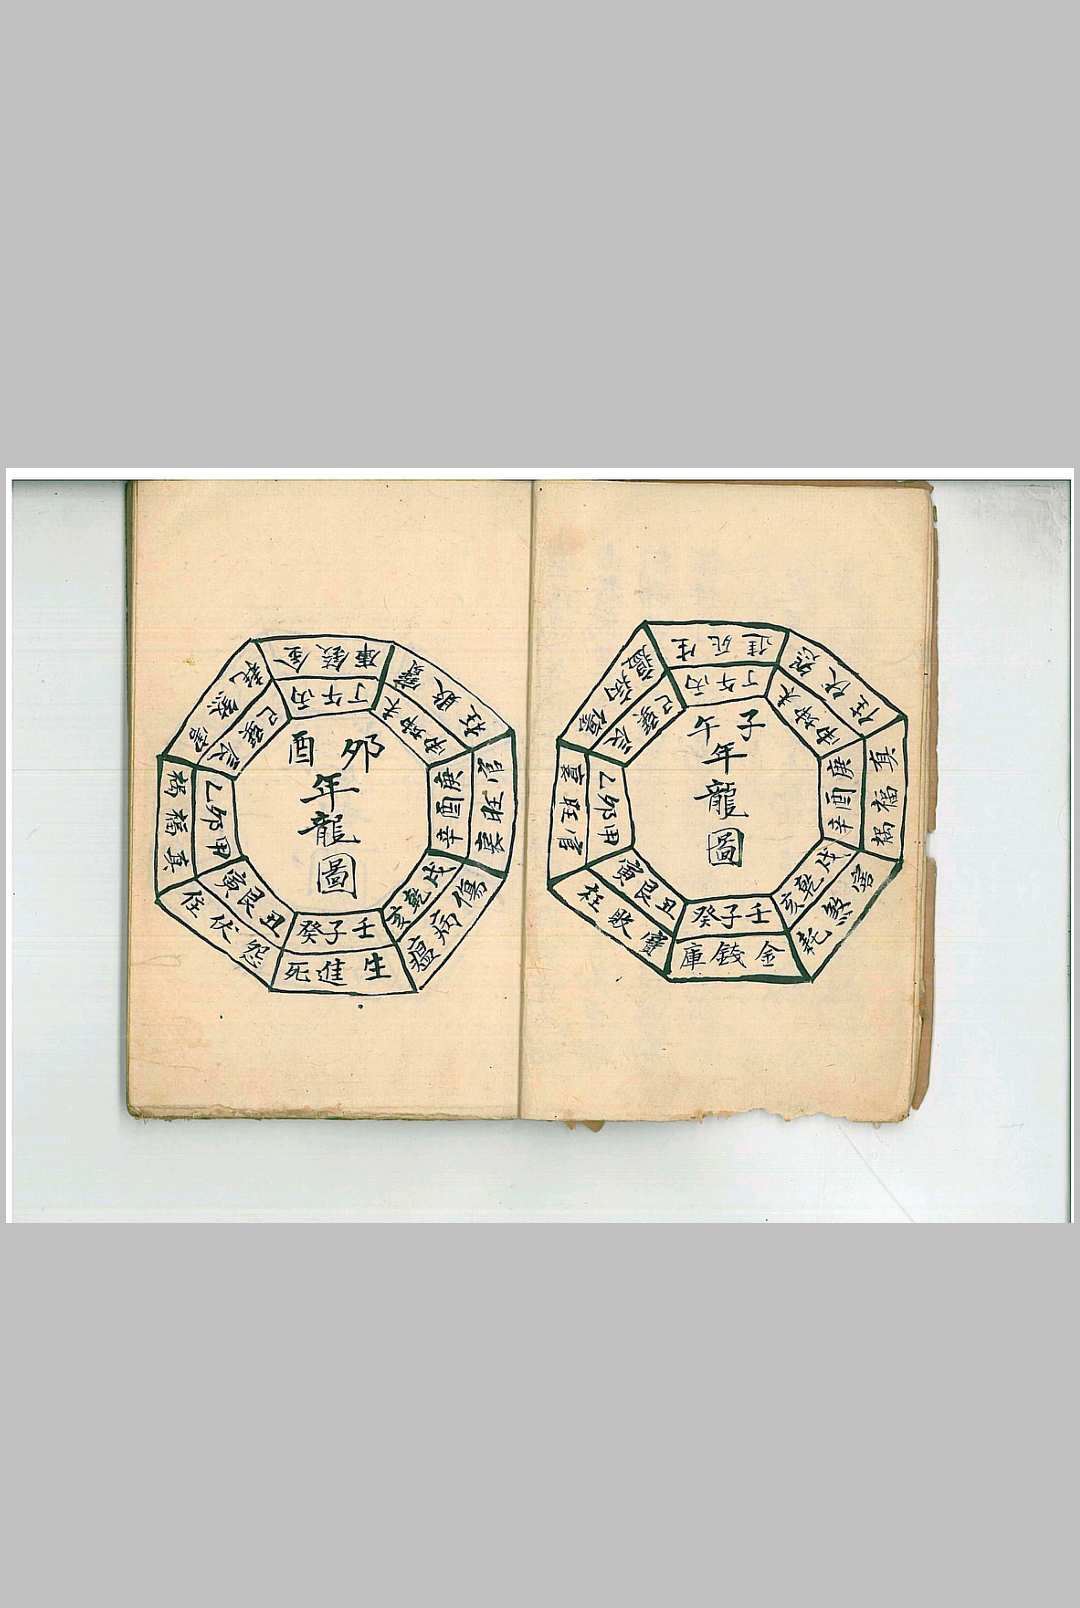 子午
年
龍
圖
壬子癸
丑艮寅
甲卯乙
辰巽巳
丙午丁
未坤申
庚酉辛
戌乾亥
金錢庫
寶敗枉
官旺
傷病瘟
生死進
怨伏任
真福禍
害煞耗
卯酉
年
龍
圖
壬子癸
丑艮寅
甲卯乙
辰巽巳
丙午丁
未坤申
庚酉辛
戌乾亥
生進死
怨伏任
真福禍
害煞耗
金錢庫
寶敗枉
官旺
傷病瘟